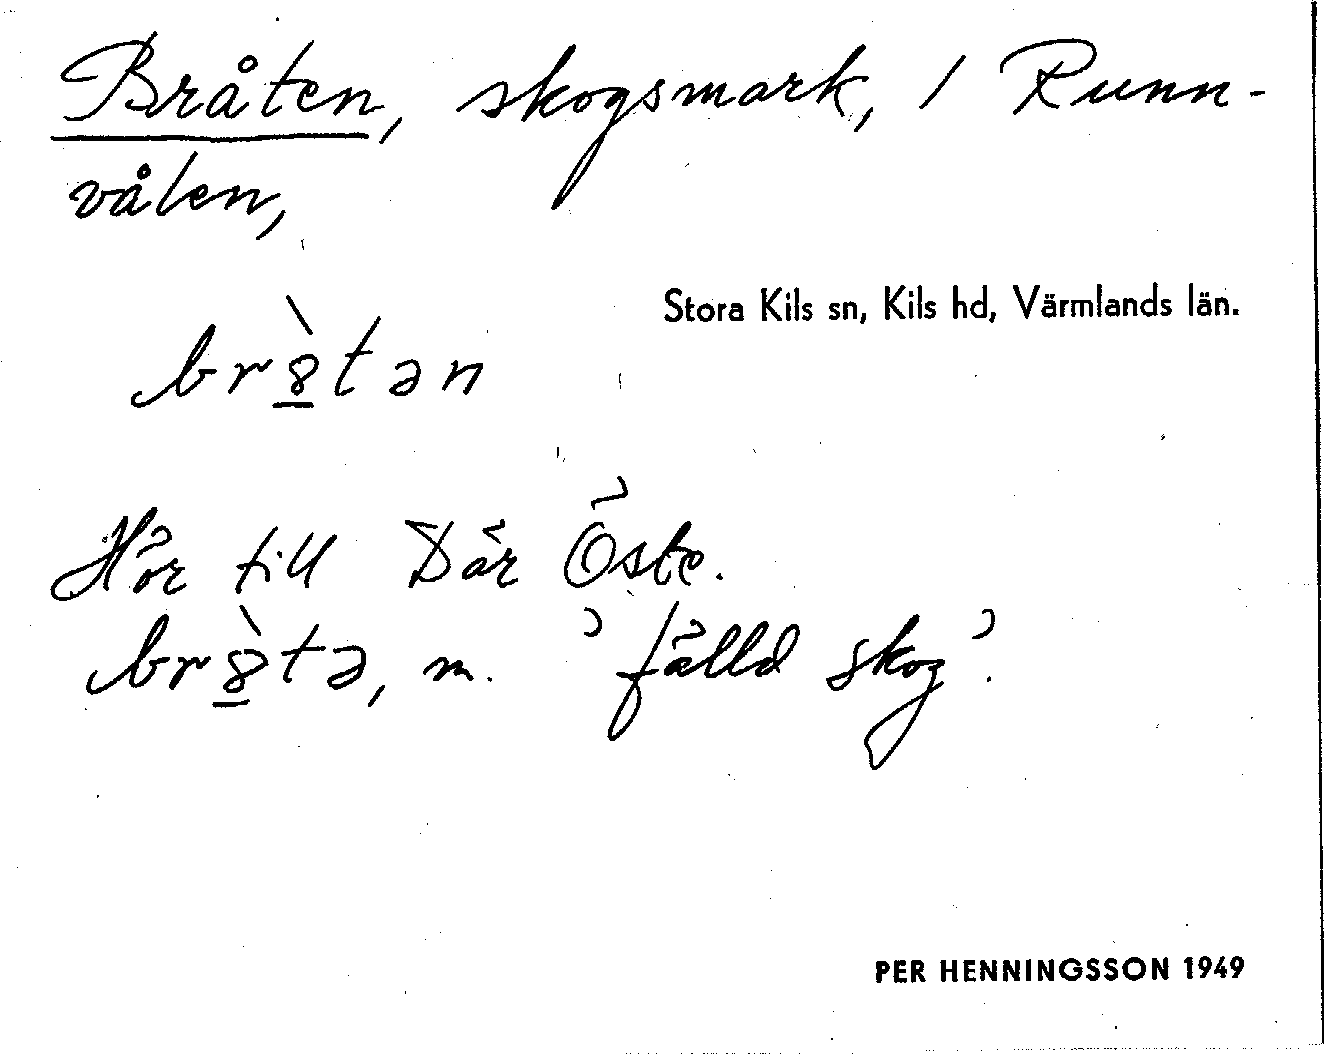 Bråten, skogsmark, i Runn-
vålen,
Stora Kils sn, Kils hd, Värmlands län.
br8̲̀tən
Hör till Där Öste.
br8̲̀tə, m. 'fälld skog'.
PER HENNINGSSON 1949